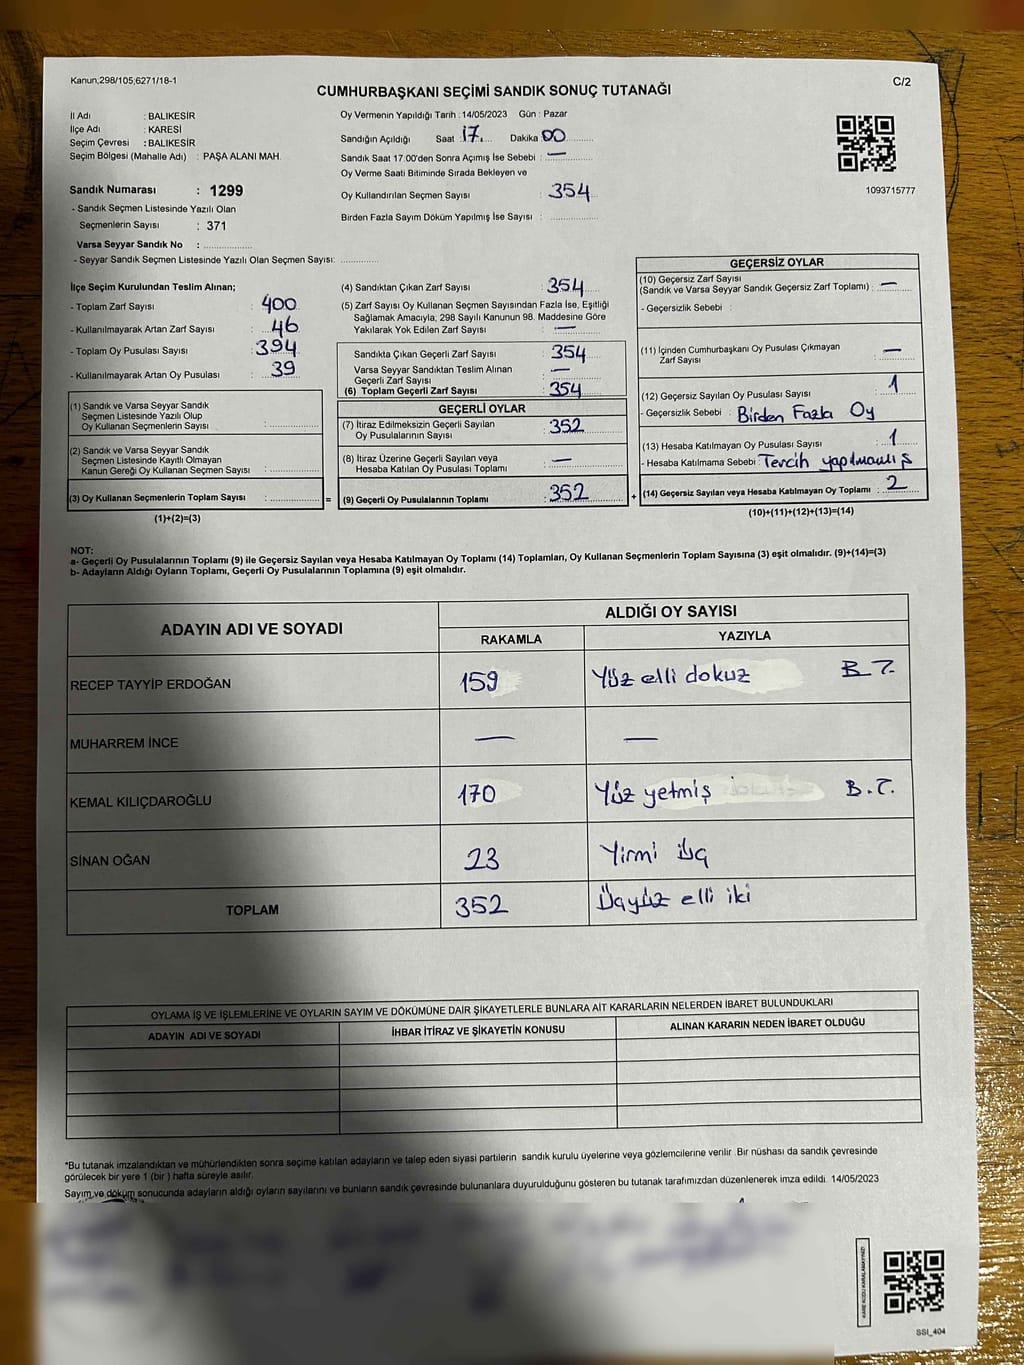 Kanun;298/105;6271/18-1
C/2
CUMHURBAŞKANI SEÇİMİ SANDIK SONUÇ TUTANAĞI
İl Adı : BALIKESİR
İlçe Adı : KARESİ
Seçim Çevresi : BALIKESİR
Seçim Bölgesi (Mahalle Adı) : PAŞA ALANI MAH.
Sandık Numarası : 1299
- Sandık Seçmen Listesinde Yazılı Olan
Seçmenlerin Sayısı : 371
Varsa Seyyar Sandık No :
- Seyyar Sandık Seçmen Listesinde Yazılı Olan Seçmen Sayısı:
Oy Vermenin Yapıldığı Tarih : 14/05/2023 Gün : Pazar
Sandığın Açıldığı Saat : 17. Dakika : 00
Sandık Saat 17:00'den Sonra Açımış İse Sebebi : —
Oy Verme Saati Bitiminde Sırada Bekleyen ve
Oy Kullandırılan Seçmen Sayısı : 354
Birden Fazla Sayım Döküm Yapılmış İse Sayısı :
1093715777
İlçe Seçim Kurulundan Teslim Alınan;
- Toplam Zarf Sayısı : 400
- Kullanılmayarak Artan Zarf Sayısı : 46
- Toplam Oy Pusulası Sayısı : 394
- Kullanılmayarak Artan Oy Pusulası : 39
(1) Sandık ve Varsa Seyyar Sandık
Seçmen Listesinde Yazılı Olup
Oy Kullanan Seçmenlerin Sayısı :
(2) Sandık ve Varsa Seyyar Sandık
Seçmen Listesinde Kayıtlı Olmayan
Kanun Gereği Oy Kullanan Seçmen Sayısı :
(3) Oy Kullanan Seçmenlerin Toplam Sayısı : =
(1)+(2)=(3)
(4) Sandıktan Çıkan Zarf Sayısı : 354
(5) Zarf Sayısı Oy Kullanan Seçmen Sayısından Fazla İse, Eşitliği
Sağlamak Amacıyla; 298 Sayılı Kanunun 98. Maddesine Göre
Yakılarak Yok Edilen Zarf Sayısı : —
Sandıkta Çıkan Geçerli Zarf Sayısı : 354
Varsa Seyyar Sandıktan Teslim Alınan
Geçerli Zarf Sayısı : —
(6) Toplam Geçerli Zarf Sayısı : 354
GEÇERLİ OYLAR
(7) İtiraz Edilmeksizin Geçerli Sayılan
Oy Pusulalarının Sayısı : 352
(8) İtiraz Üzerine Geçerli Sayılan veya
Hesaba Katılan Oy Pusulası Toplamı : —
(9) Geçerli Oy Pusulalarının Toplamı : 352 +
GEÇERSİZ OYLAR
(10) Geçersiz Zarf Sayısı
(Sandık ve Varsa Seyyar Sandık Geçersiz Zarf Toplamı) : —
- Geçersizlik Sebebi :
(11) İçinden Cumhurbaşkanı Oy Pusulası Çıkmayan
Zarf Sayısı : —
(12) Geçersiz Sayılan Oy Pusulası Sayısı : 1
- Geçersizlik Sebebi : Birden Fazla Oy
(13) Hesaba Katılmayan Oy Pusulası Sayısı : 1
- Hesaba Katılmama Sebebi : Tercih yapılmamış
(14) Geçersiz Sayılan veya Hesaba Katılmayan Oy Toplamı : 2
(10)+(11)+(12)+(13)=(14)
NOT:
a- Geçerli Oy Pusulalarının Toplamı (9) ile Geçersiz Sayılan veya Hesaba Katılmayan Oy Toplamı (14) Toplamları, Oy Kullanan Seçmenlerin Toplam Sayısına (3) eşit olmalıdır. (9)+(14)=(3)
b- Adayların Aldığı Oyların Toplamı, Geçerli Oy Pusulalarının Toplamına (9) eşit olmalıdır.
ADAYIN ADI VE SOYADI
ALDIĞI OY SAYISI
RAKAMLA YAZIYLA
RECEP TAYYİP ERDOĞAN 159 Yüz elli dokuz B.T.
MUHARREM İNCE — —
KEMAL KILIÇDAROĞLU 170 Yüz yetmiş B.T.
SİNAN OĞAN 23 Yirmi üç
TOPLAM 352 Üçyüz elli iki
OYLAMA İŞ VE İŞLEMLERİNE VE OYLARIN SAYIM VE DÖKÜMÜNE DAİR ŞİKAYETLERLE BUNLARA AİT KARARLARIN NELERDEN İBARET BULUNDUKLARI
ADAYIN ADI VE SOYADI İHBAR İTİRAZ VE ŞİKAYETİN KONUSU ALINAN KARARIN NEDEN İBARET OLDUĞU
*Bu tutanak imzalandıktan ve mühürlendikten sonra seçime katılan adayların ve talep eden siyasi partilerin sandık kurulu üyelerine veya gözlemcilerine verilir Bir nüshası da sandık çevresinde
görülecek bir yere 1 (bir ) hafta süreyle asılır.
Sayım ve döküm sonucunda adayların aldığı oyların sayılarını ve bunların sandık çevresinde bulunanlara duyurulduğunu gösteren bu tutanak tarafımızdan düzenlenerek imza edildi. 14/05/2023
KARE KODU KARALAMAYINIZ!
SSI_404